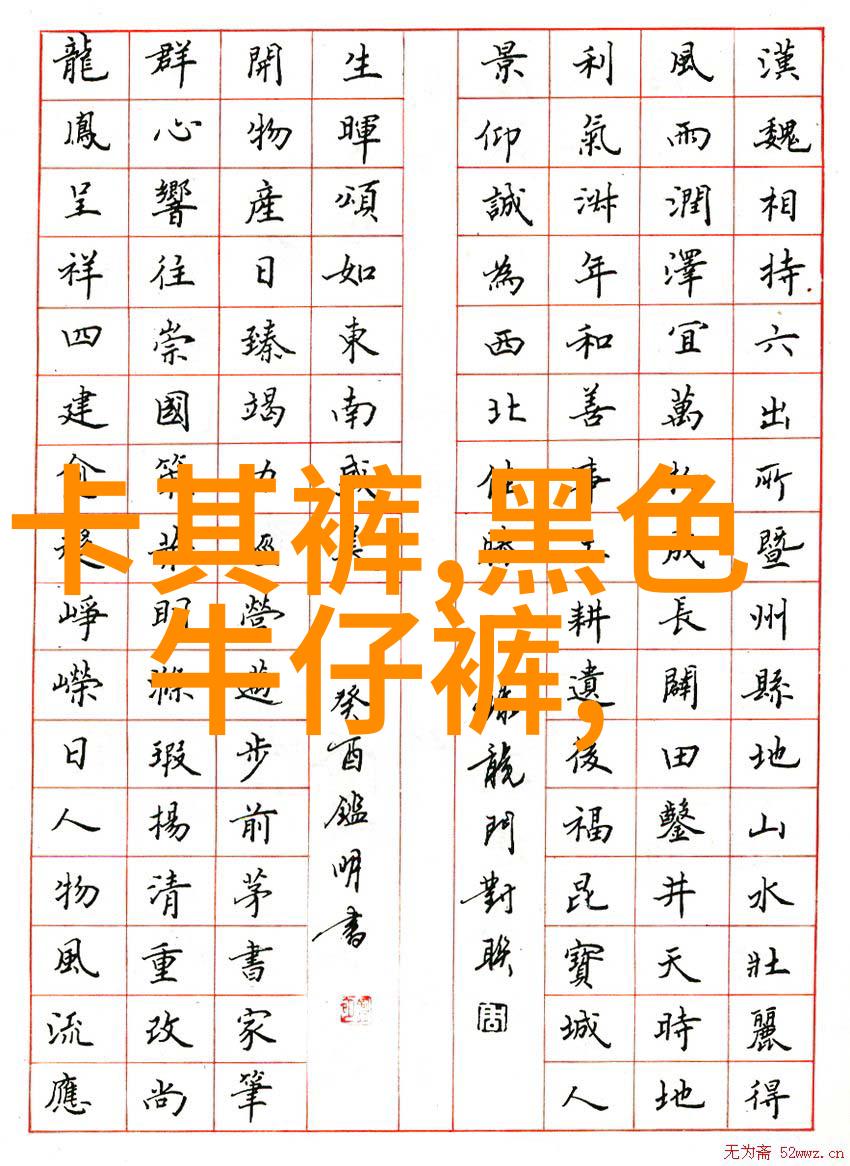 漢魏相持六出所暨州縣地山水壯麗得
風雨潤澤宜萬成長闢田鑿井天時地
利氣年和善事耕遺後福昆寶城人
景仰誠為西北
龍門對聯
生暉頌如東南
癸酉鑑明書
開物產日臻竭力營邁步前茅書家筆
群心響往崇國策明滌瑕揚清重改尚
龍鳳呈祥四建崢嶸日人物風流應
卡其裤,黑色
牛仔裤,
无为斋 52wwz.cn